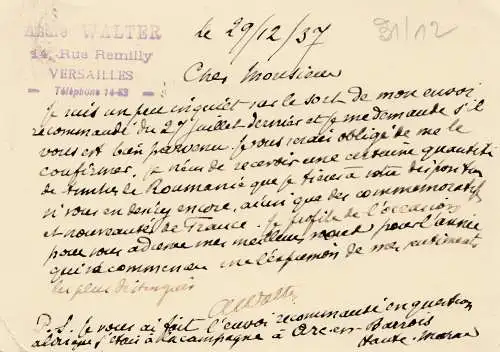 André WALTER
14, Rue Remilly
VERSAILLES
Téléphone 14-63
31/12
le 29/12/37
Cher Monsieur
Je suis un peu inquiet sur le sort de mon envoi
recommandé du 27 juillet dernier et je me demande s'il
vous est bien parvenu. Je vous serai obligé de me le
confirmer. Je viens de recevoir une certaine quantité
de timbres de Roumanie que je tiens à votre disposition
si vous en désirez encore, ainsi que des commémoratifs
et nouveautés de France. Je profite de l'occasion
pour vous adresser mes meilleurs vœux pour l'année
qui va commencer et l'expression de mes sentiments
les plus distingués
AWalter
P.S. Je vous ai fait l'envoi recommandé en question
alors que j'étais à la campagne à Arc-en-Barrois
Haute-Marne